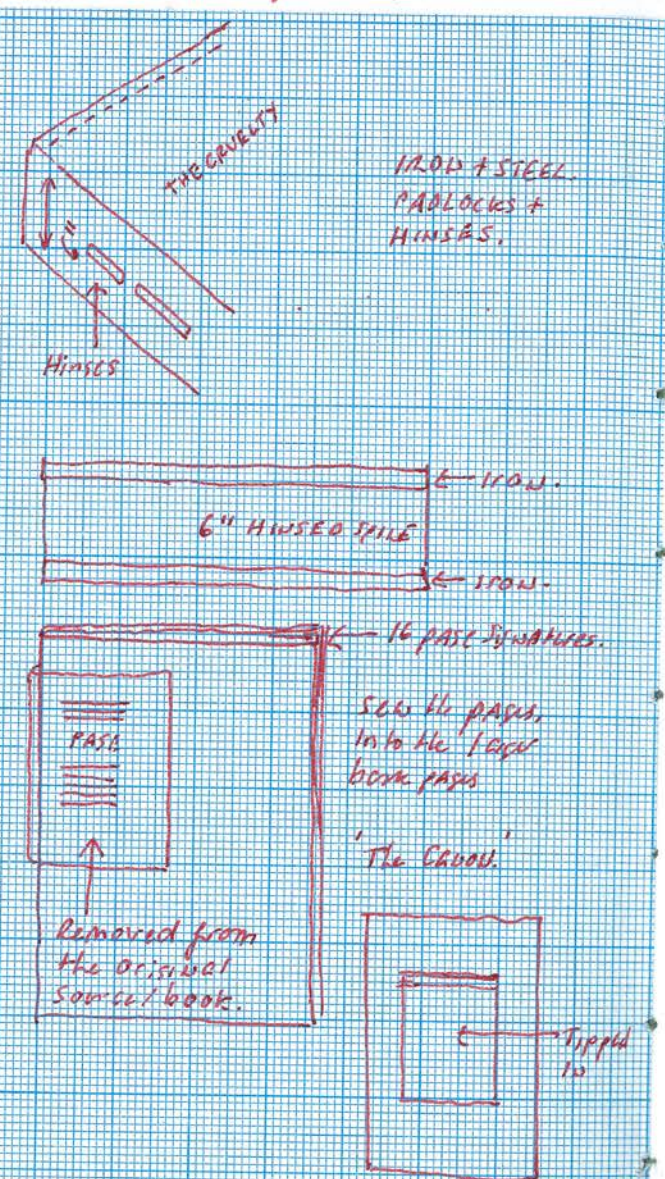 THE CRUELTY
IRON + STEEL.
PADLOCKS +
HINGES.
6"
Hinges
IRON.
6" HINGED SPINE
IRON.
16 page signatures.
PAGE
Sew the pages,
into the larger
book pages
Removed from
the original
source/book.
Tipped
in